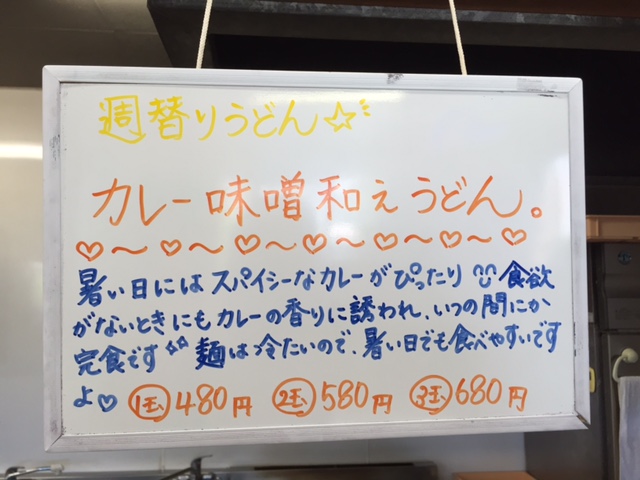 週替りうどん☆
カレー味噌和えうどん。
♡〜♡〜♡〜♡〜♡〜♡
暑い日にはスパイシーなカレーがぴったり☺食欲
がないときにもカレーの香りに誘われ、いつの間にか
完食です☆☆麺は冷たいので、暑い日でも食べやすいです
よ♡ 1玉480円 2玉580円 3玉680円